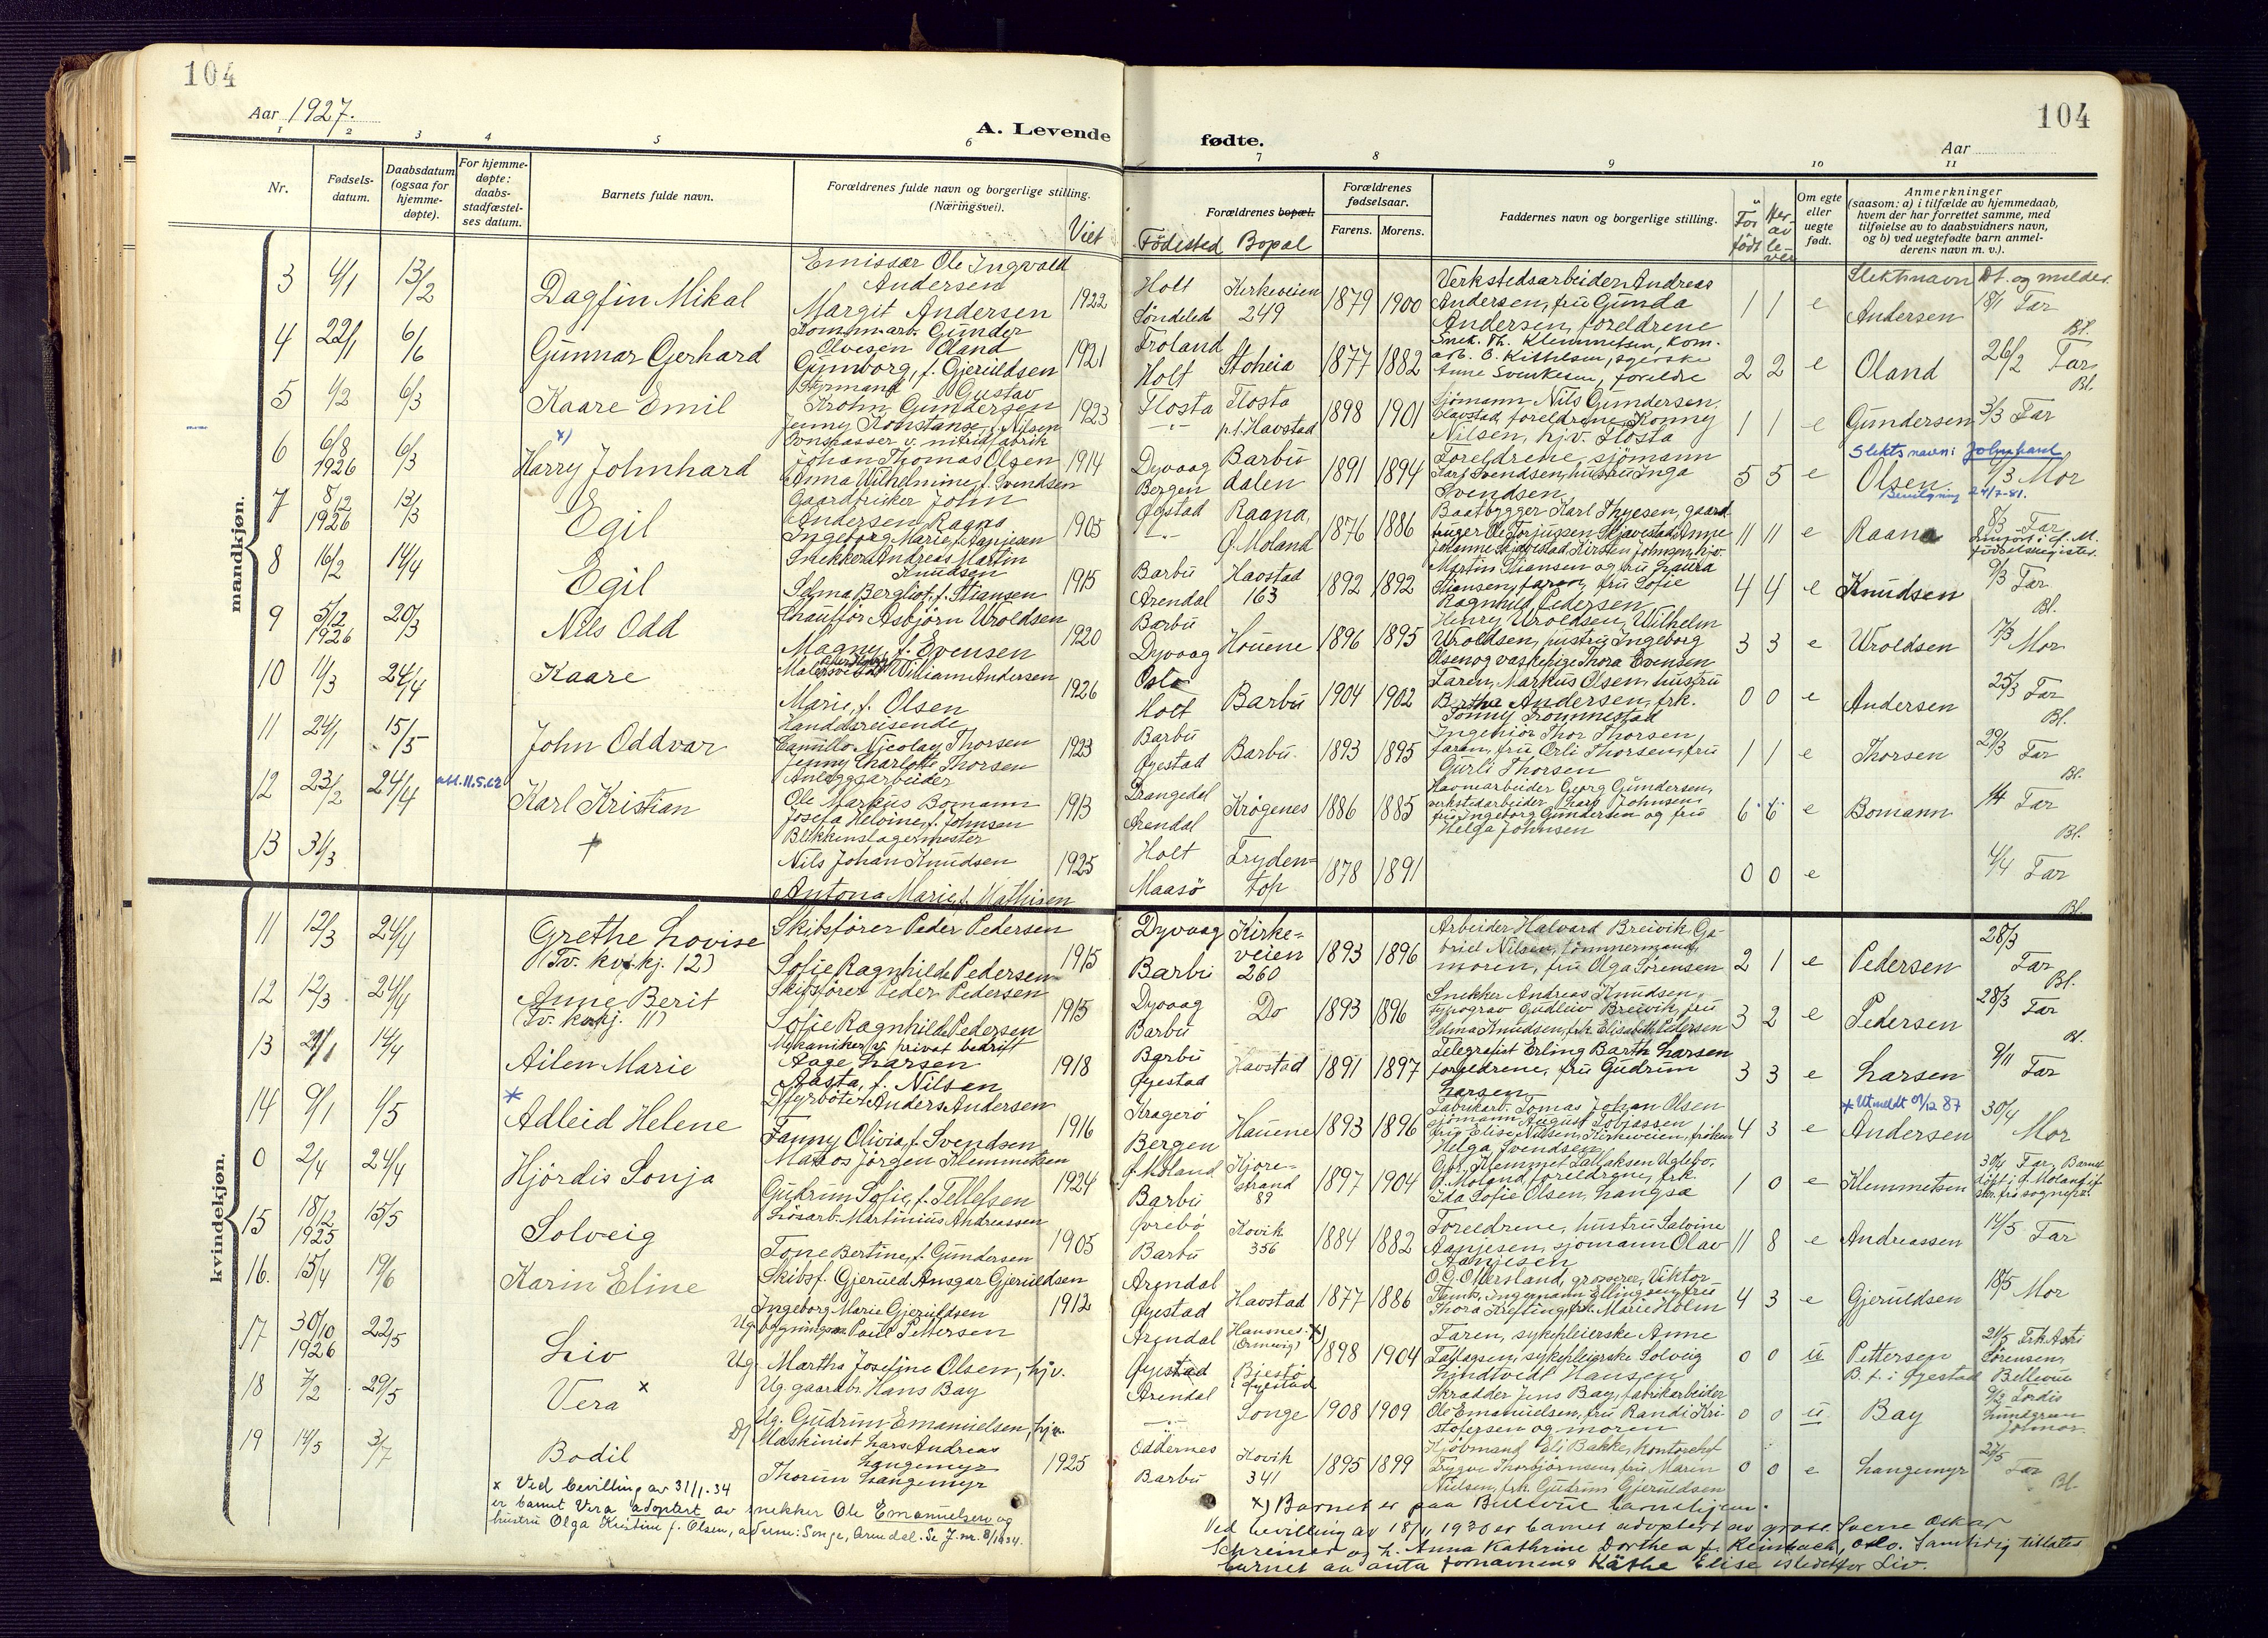 104
104
Aar 1927.
A. Levende fødte.
Aar
1 2 3 4 5 6 7 8 9 10 11
Nr.
Fødselsdatum.
Daabsdatum (ogsaa for hjemmedøpte).
For hjemmedøpte: daabsstadfæstelses datum.
Barnets fulde navn.
Forældrenes fulde navn og borgerlige stilling. (Næringsvei).
Viet
Forældrenes bopæl.
Födested Bopal
Forældrenes fødselsaar.
Farens. Morens.
Faddernes navn og borgerlige stilling.
Før födt
Her av lever
Om egte eller uegte født.
Anmerkninger (saasom: a) i tilfælde av hjemmedaab, hvem der har forrettet samme, med tilføielse av to daabsvidners navn, og b) ved uegtefødte barn anmelderens navn m. v.).
Slektsnavn Dt. og melder
mandkjøn.
3 4/1 13/2 Dagfin Mikal
Emissær Ole Ingvald
Andersen
Margit Andersen 1922
Holt Kirkeveien
Söndeled 249 1879 1900
Verkstedsarbeider Andreas
Andersen, fru Gunda
Andersen, foreldrene
1 1 e Andersen 18/1 Far Bl.
4 22/1 6/6 Gunnar Gerhard
Komm.arb. Gunder
Olvesen Oland
Gunborg, f. Gjeruldsen 1921
Froland
Holt Stoheia 1877 1882
Smed. Th. Klemmetsen, kom.
arb. O. Kittelsen, syerske
Anne Svenkesen, foreldre
2 2 e Oland 26/2 Far Bl.
5 1/2 6/3 Kaare Emil
Styrmand Gustav
Krohn Gundersen
Jenny Konstanse, f. Nilsen 1923
Flosta Flosta
-"- p.t. Havstad 1898 1901
Sjömann Nils Gundersen,
foreldrene, Konny
Nilsen, hj.v. Flosta
1 1 e Gundersen 3/3 Far
6 6/8 1926 6/3 x) Harry Johnhard
Ovnspasser v. nitridfabrik
Johan Thomas Olsen
Anna Wilhelmine, f. Svendsen 1914
Dyvaag Barbu
Bergen dalen 1891 1894
Foreldrene, sjömann
Karl Svendsen, hustru Inga
Svendsen
5 5 e Slektsnavn: Johnhard
Olsen 1/3 Mor
Bevilgning 24/7-81.
7 8/12 1926 13/3 Egil
Gaardbruker John
Andersen Raana
Ingeborg Marie, f. Aanjesen 1905
Öyestad Raana,
-"- Ö. Moland 1876 1886
Baatbygger Karl Thyesen, gaard
bruger Ole Torjussen Skjævestad, Anne
Johanne Skjævestad, Kirsten Johnsen, hj.v.
11 11 e Raana 8/3 Far
innfört i Ö. M. födselsregister.
8 16/2 14/4 Egil
Snekker Andreas Martin
Knudsen
Selma Bergliot, f. Stiansen 1915
Barbu Havstad
Arendal 163 1892 1892
Martin Stiansen og fru Laura
Stiansen, faren, fru Sofie
Ragnhild Pedersen
4 4 e Knudsen 9/3 Far Bl.
9 5/12 1926 20/3 Nils Odd
Chauffør Asbjörn Uroldsen
Magny, f. Evensen 1920
Barbu
Dyvaag Houene 1896 1895
Henry Uroldsen, Wilhelm
Uroldsen, hustru Ingeborg
Olsen og vaskepige Thora Evensen
3 3 e Uroldsen 17/3 Mor
10 11/3 24/4 Kaare
Malersvend William Andersen
Marie, f. Olsen 1926
Oslo
Holt Barbu 1904 1902
Faren, Markus Olsen, hustru
Berthe Andersen, frk.
Tonny Trommestad
0 0 e Andersen 25/3 Far Bl.
11 24/1 15/5 John Oddvar
Handelsreisende
Camillo Nicolay Thorsen
Jenny Charlotte Thorsen 1923
Barbu
Öyestad Barbu. 1893 1895
Ingeniör Thor Thorsen,
faren, fru Orli Thorsen, fru
Gurli Thorsen
1 1 e Thorsen 29/3 Far Bl.
12 23/2 24/4 att. 11.5.62 Karl Kristian
Anleggsarbeider
Ole Markus Bomann
Josefa Helvine, f. Johnsen 1913
Drangedal
Arendal Krögenes 1886 1885
Havnearbeider Georg Gundersen,
verkstedarbeider Charl Johnsen,
fru Ingeborg Gundersen og fru
Helga Johnsen
6 6 e Bomann 1/4 Far Bl.
13 31/3 +
Blikkenslagermester
Nils Johan Knudsen
Antona Marie, f. Mathisen 1925
Holt Fryden-
Maasö top 1878 1891
0 0 e 4/4 Far Bl.
kvindekjøn.
11 12/3 24/4 Grethe Lovise
(Tv. kv.kj. 12)
Skibsförer Peder Pedersen
Sofie Ragnhilde Pedersen 1915
Dyvaag Kirke-
veien
Barbu 260 1893 1896
Arbeider Halvard Breivik, Ga-
briel Nilsen, tömmermand,
moren, fru Olga Sörensen
2 1 e Pedersen 28/3 Far Bl.
12 12/3 24/4 Anne Berit
(Tv. kv.kj. 11)
Skibsförer Peder Pedersen
Sofie Ragnhilde Pedersen 1915
Dyvaag
Barbu Do 1893 1896
Snekker Andreas Knudsen,
typograv Gudleiv Breivik, fru
Selma Knudsen, frk. Elisabeth Pedersen
3 2 e Pedersen 28/3 Far Bl.
13 21/1 14/4 Ailen Marie
Mekaniker v. privat bedrift
Aage Larsen
Aasta, f. Nilsen 1918
Barbu
Öyestad Havstad 1891 1897
Telegrafist Erling Barth Larsen
foreldrene, fru Gudrun
Larsen
3 3 e Larsen 9/11 Far
14 9/1 1/5 * Adleid Helene
Fyrböter Anders Andersen
Fanny Olivia, f. Svendsen 1916
Kragerö
Bergen Hauene 1893 1896
Fabrikarb. Tomas Johan Olsen
sjömann August Tobiassen
fru Elise Nilsen, Kirkeveien, fröken
Helga Svendsen
4 3 e * Utmeldt 01/12 87
Andersen 30/4 Mor
0 2/4 24/4 Hjördis Sonja
Matros Jörgen Klemmetsen
Gudrun Sofie, f. Tellefsen 1924
Ö. Moland Kjore-
strand
Barbu 89 1897 1904
Gbr. Klemmet Uglebo,
Ö. Moland, foreldrene, frk.
Ida Sofie Olsen, Langsæ
1 0 e Klemmetsen 30/4 Far, Barnet
döpt i Ö. Moland if.
skr. fra sognepr.
15 18/12 1925 15/5 Solveig
Lösarb. Martinius Andreassen
Tone Bertine, f. Gundersen 1905
Övrebö Kovik
Barbu 356 1884 1882
Foreldrene, hustru Salvine
Aanjesen, sjömann Olav
Aanjesen
11 8 e Andreassen 14/5 Far
16. 15/4 19/6 Karin Eline
Skibsf. Gjeruld Ansgar Gjeruldsen
Ingeborg Marie Gjeruldsen 1912
Arendal
Öyestad Havstad 1877 1886
O. G. Ottersland, grosserer, Viktor
Ingemann Ellingsen, fru
Thora Krefting, frk. Marie Holm
4 3 e Gjeruldsen 18/5 Mor
17 30/10 1926 22/5 Liv
Ug. bygningsm. Paul Pettersen
Ug. Martha Josefine Olsen, hj.v.
Arendal x)
Öyestad Bjestö i Öyestad 1898 1904
Faren, sykepleierske Anne
Tallagsen, sykepleierske Solveig
Lindtvedt Hansen
0 0 u Pettersen 21/5 Frk. Astri
Sörensen,
B. f. i Öyestad Bellevue
18 7/2 29/5 Vera x
Ug. gaardbr. Hans Bay
Ug. Gudrun Emanuelsen, hj.v.
Arendal
-"- Songe 1908 1909
Skrædder Jens Bay, fabrikarbeider
Ole Emanuelsen, fru Randi Kri
stofersen og moren
0 0 u Bay Tordis
Lundgreen
jolmor.
19 14/5 3/7 Bodil
Maskinist Lars Andreas
Langemyr
Thorun Langemyr 1925
Oddernes Kovik
Barbu 341 1895 1899
Kjöbmand Eli Bakke, kontorchef
Trygve Thorbjörnsen, fru Maren
Nielsen, frk. Gudrun Gjeruldsen
0 0 e Langemyr 27/5 Far Bl.
x Ved bevilling av 31/1-34
er barnet Vera adoptert av snekker Ole Emanuelsen og
hustru Olga Kristine f. Olsen, adresse: Songe, Arendal. Se J. nr. 8/1934.
x) Barnet er paa Bellevue barnehjem.
Ved bevilling av 18/1 1930 er barnet adoptert av gross. Sverre Oskar
Schreiner og h. Anna Kathrine Dorthea f. Reinback, Oslo. Samtidig tillates
barnet aa anta fornavnene Käthe Elise istedetfor Liv.